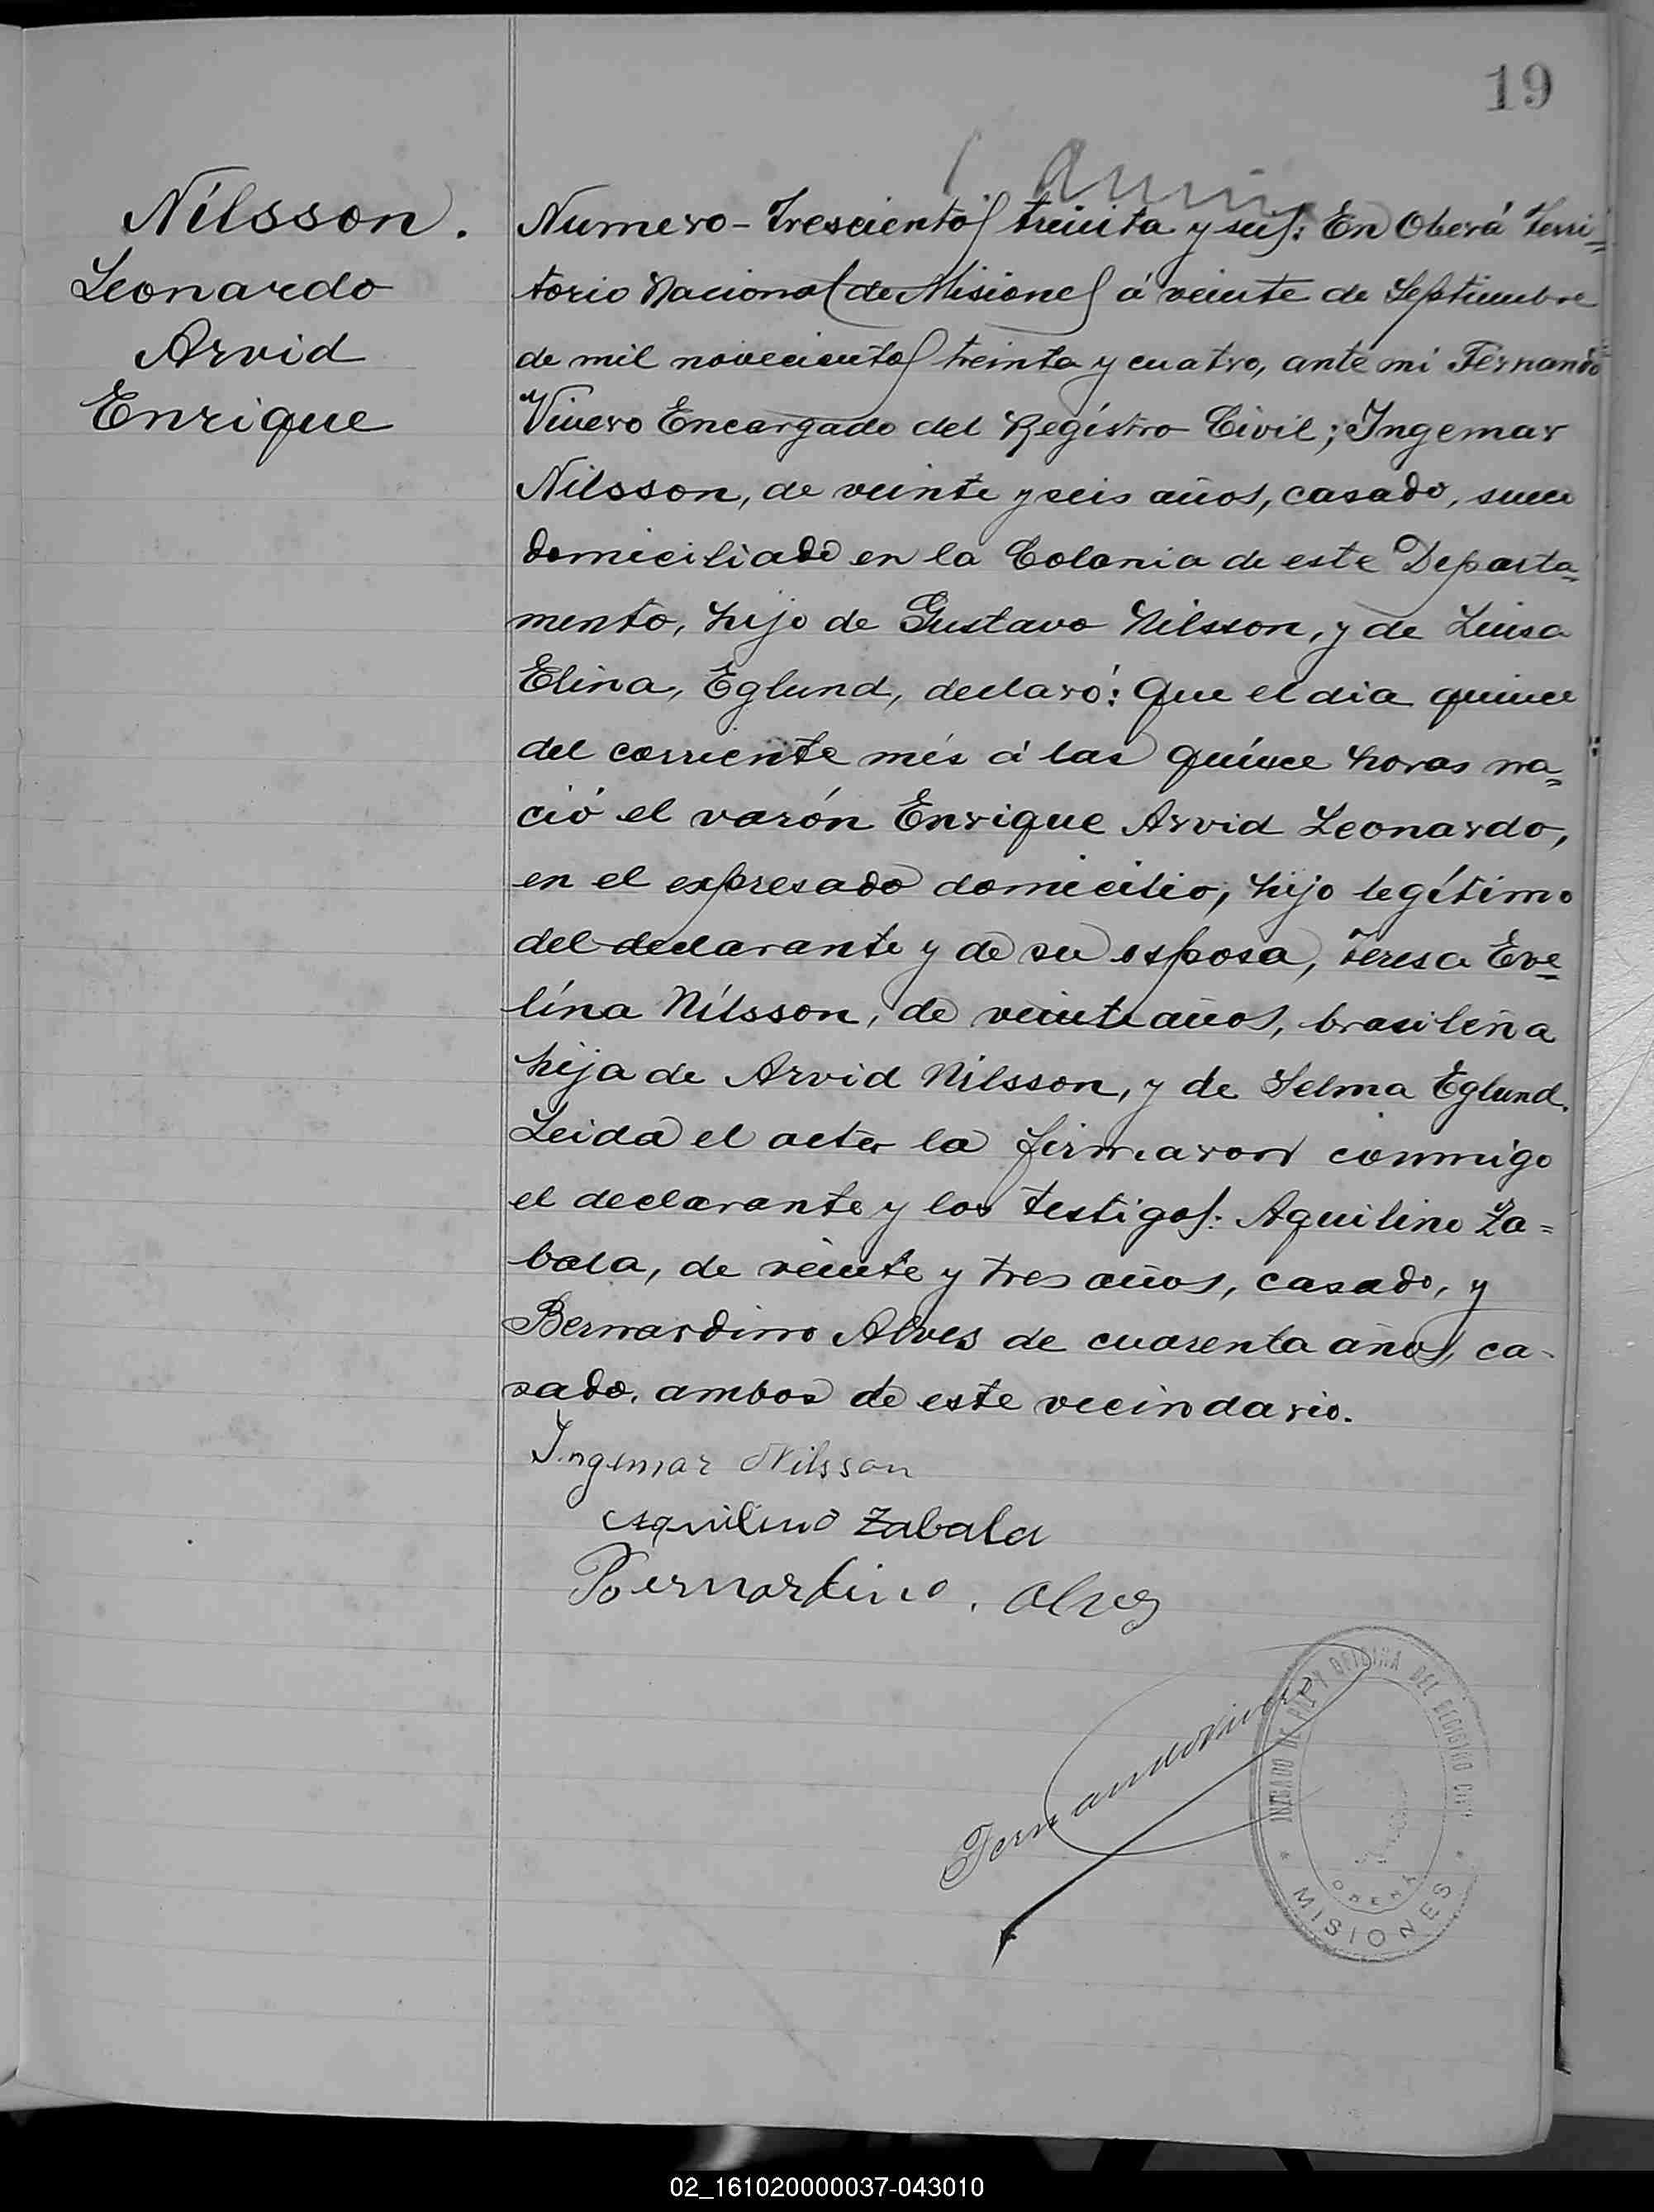 19
Nilsson.
Leonardo
Arvid
Enrique
Numero - Trescientos treinta y seis: En Oberá Terri=
torio Nacional de Misiones á veinte de Septiembre
de mil novecientos treinta y cuatro, ante mi Fernando
Vivero Encargado del Registro Civil; Ingemar
Nilsson, de veinte y seis años, casado, sueco
domiciliado en la Colonia de este Departa=
mento, hijo de Gustavo Nilsson, y de Luisa
Elina, Eglund, declaró: Que el dia quince
del corriente més á las quince horas na=
ció el varón Enrique Arvid Leonardo,
en el expresado domicilio, hijo legítimo
del declarante y de su esposa, Teresa Eve=
lina Nilsson, de veinte años, brasileña
hija de Arvid Nilsson, y de Selma Eglund.
Leida el acta la firmaron conmigo
el declarante y los testigos: Aquilino Za=
bala, de veinte y tres años, casado, y
Bernardino Alves de cuarenta años, ca-
sado, ambos de este vecindario.
Ingemar Nilsson
Aquilino Zabala
Bernardino. Alves
Fernando Vivero
JUZGADO DE PAZ Y OFICINA DEL REGISTRO CIVIL
OBERÁ
* MISIONES *
02_161020000037-043010